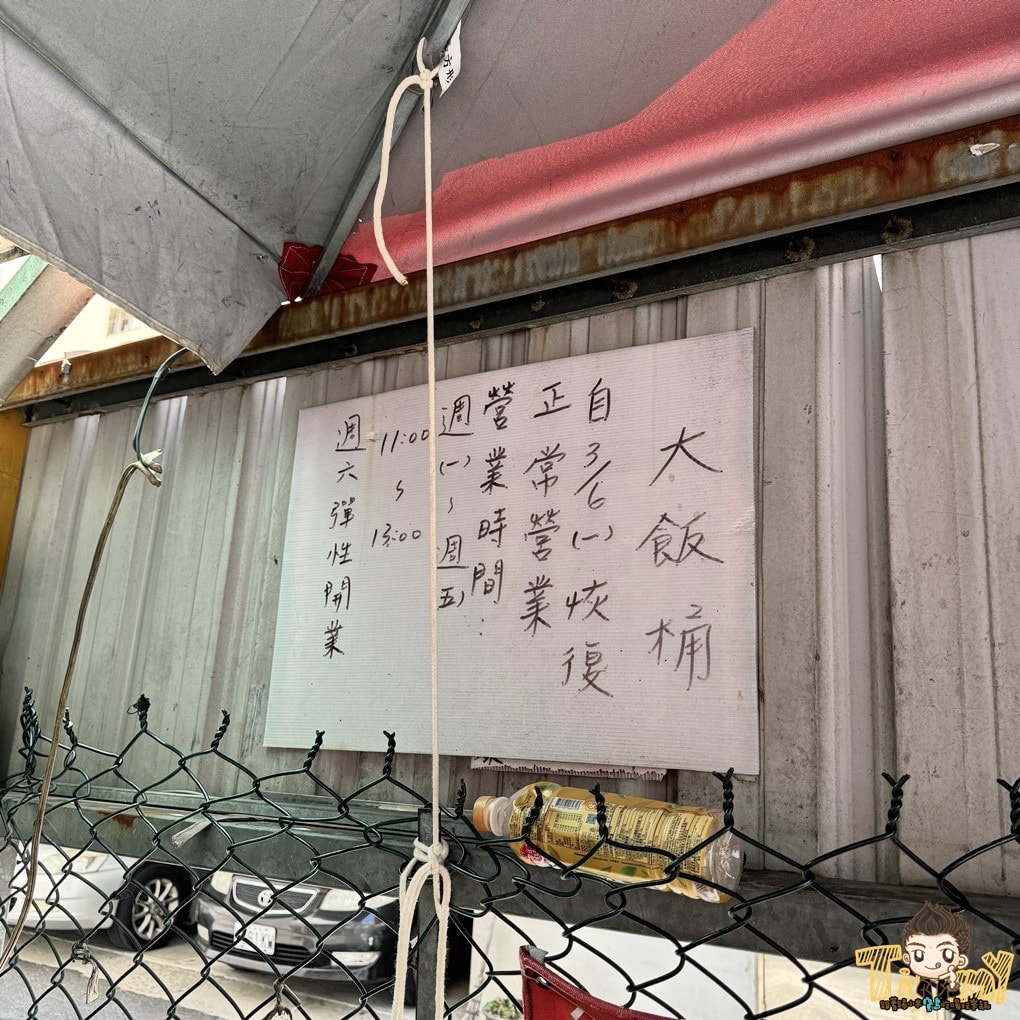 大飯桶
自3/6(一)恢復
正常營業
營業時間:
週(一)~週(五)
11:00~13:00
週六彈性開業
方形
Timmy